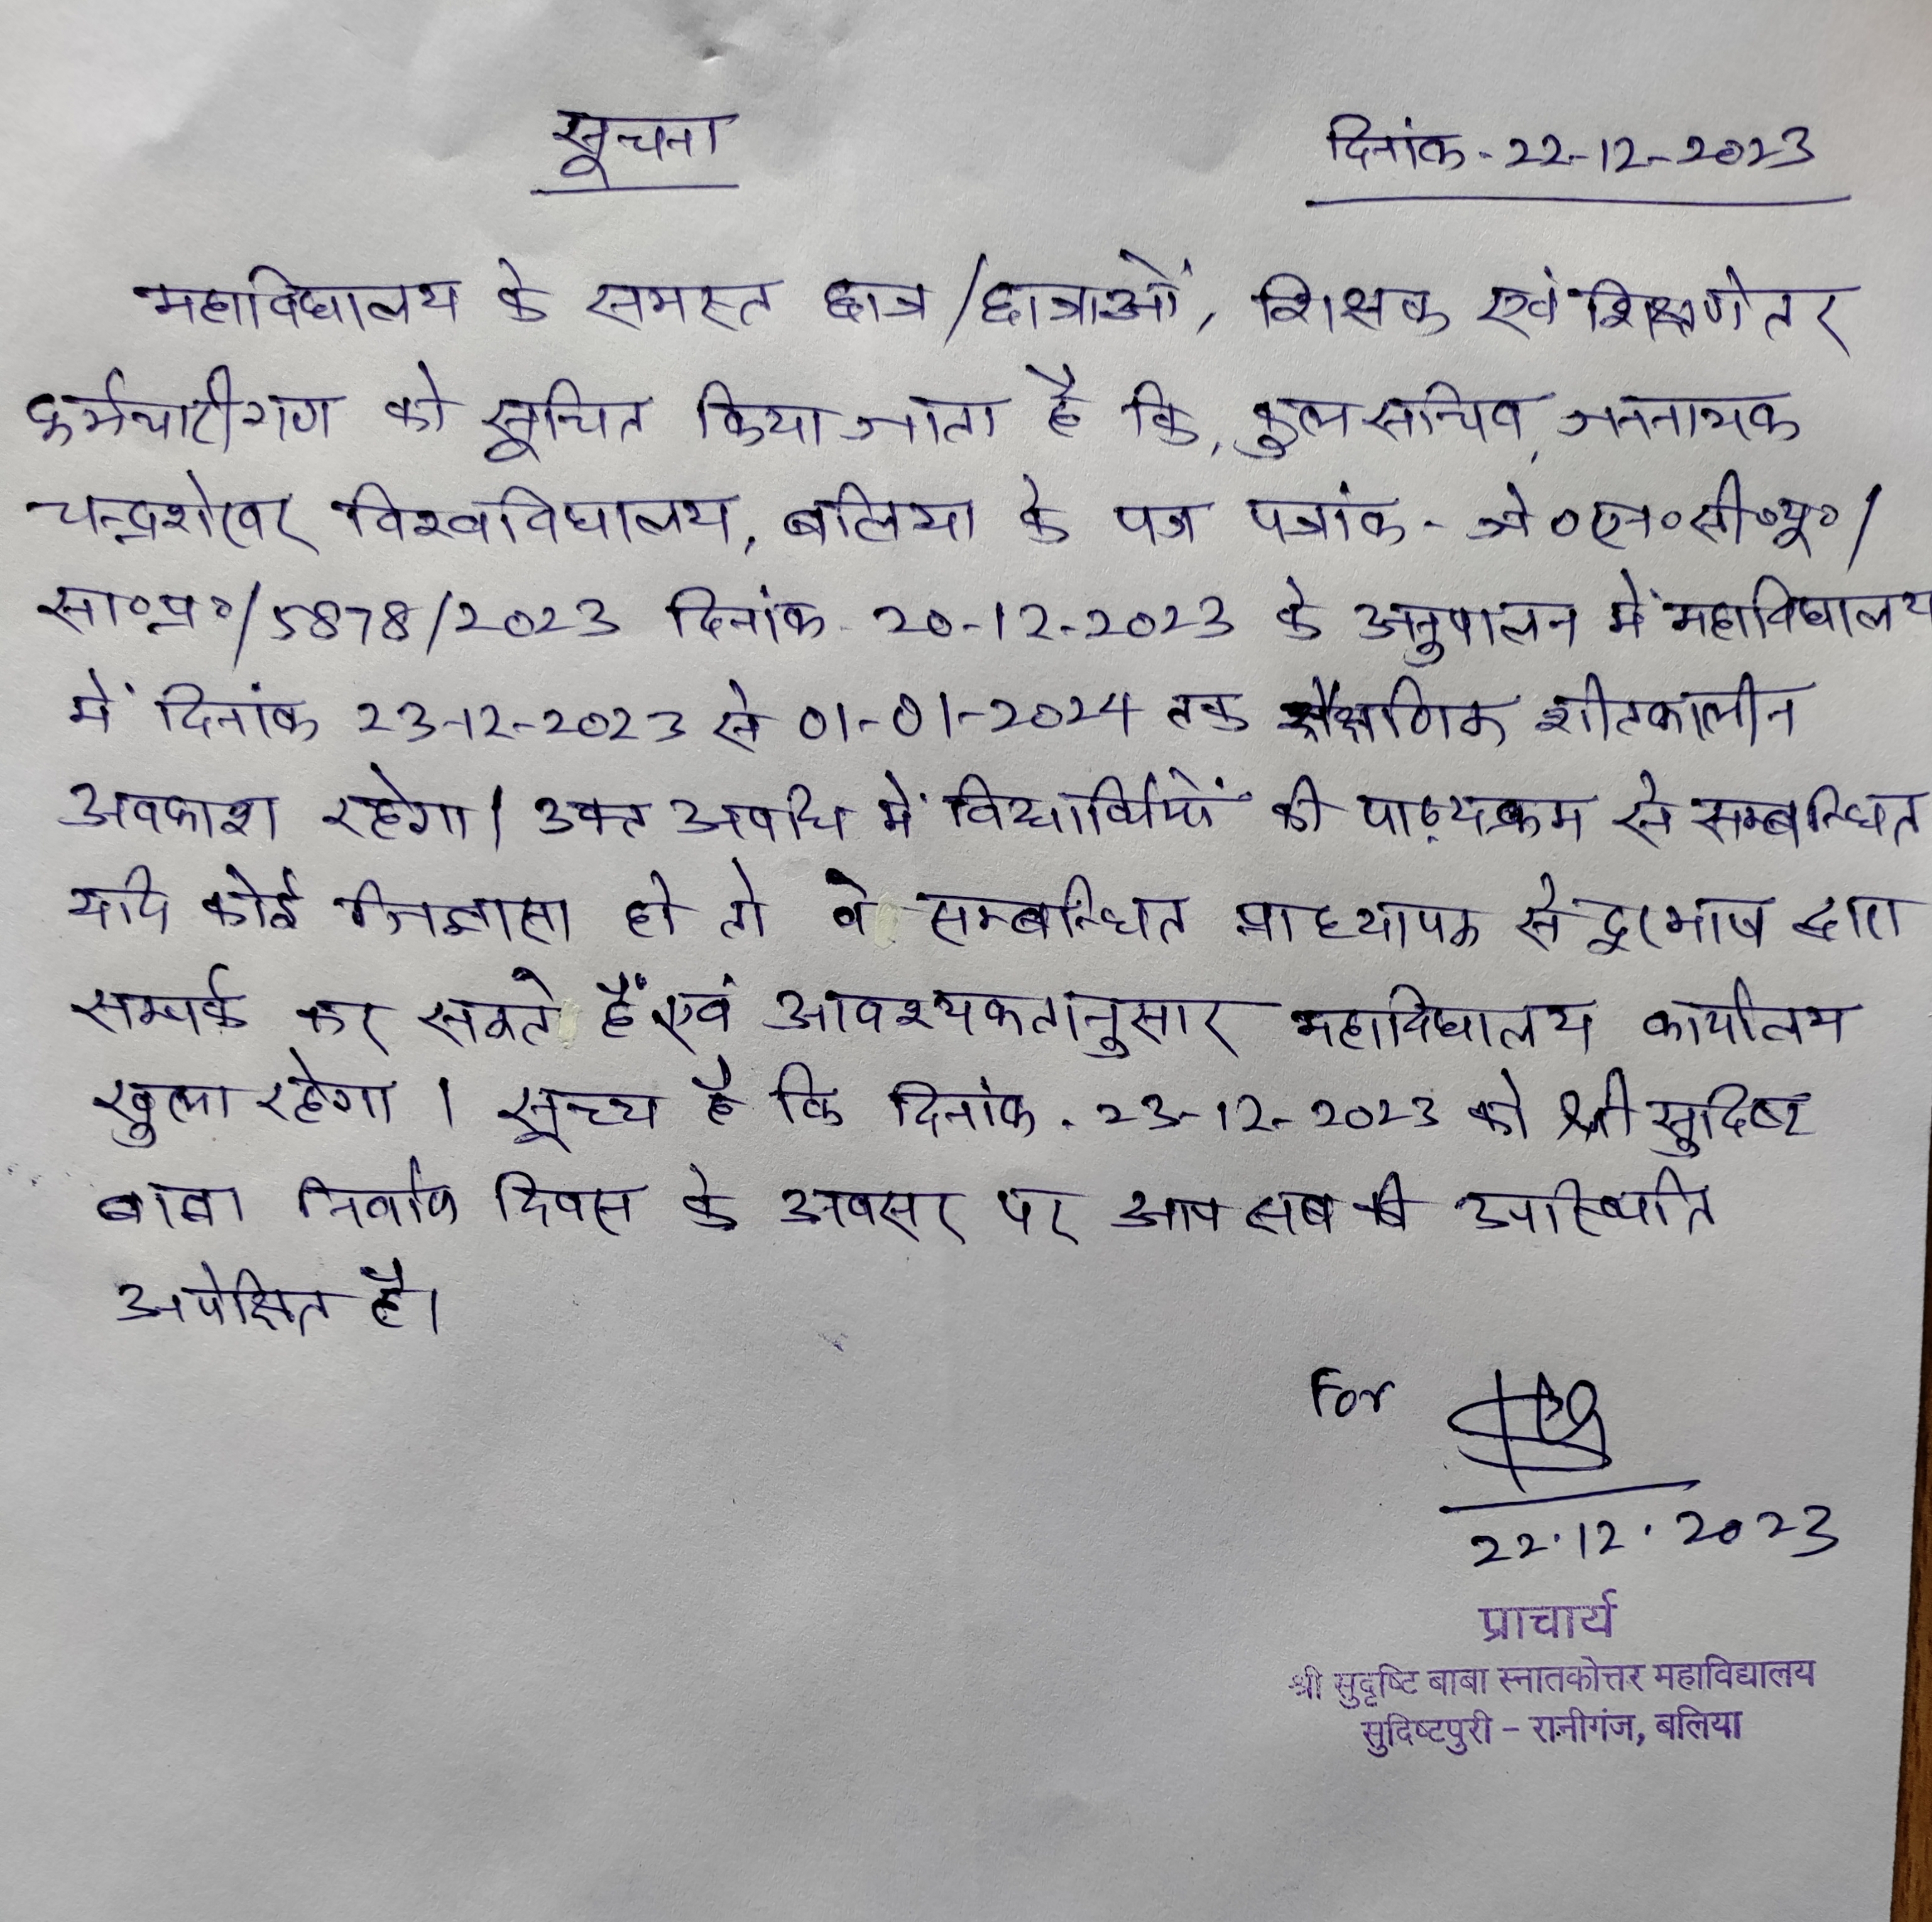 सूचना
दिनांक - 22-12-2023
महाविद्यालय के समस्त छात्र/छात्राओं, शिक्षक एवं शिक्षणेतर
कर्मचारीगण को सूचित किया जाता है कि, कुलसचिव, जननायक
चन्द्रशेखर विश्वविद्यालय, बलिया के पत्र पत्रांक - जे०एन०सी०यू०/
सा०प्र०/5878/2023 दिनांक 20-12-2023 के अनुपालन में महाविद्यालय
में दिनांक 23-12-2023 से 01-01-2024 तक शैक्षणिक शीतकालीन
अवकाश रहेगा। उक्त अवधि में विद्यार्थियों की पाठ्यक्रम से सम्बन्धित
यदि कोई जिज्ञासा हो तो वे सम्बन्धित प्राध्यापक से दूरभाष द्वारा
सम्पर्क कर सकते हैं एवं आवश्यकतानुसार महाविद्यालय कार्यालय
खुला रहेगा । सूच्य है कि दिनांक . 23-12-2023 को श्री सुदिष्ट
बाबा दिवस के अवसर पर आप सब की उपस्थिति
अपेक्षित है।
For
22.12.2023
प्राचार्य
श्री सुदृष्टि बाबा स्नातकोत्तर महाविद्यालय
सुदिष्टपुरी – रानीगंज, बलिया